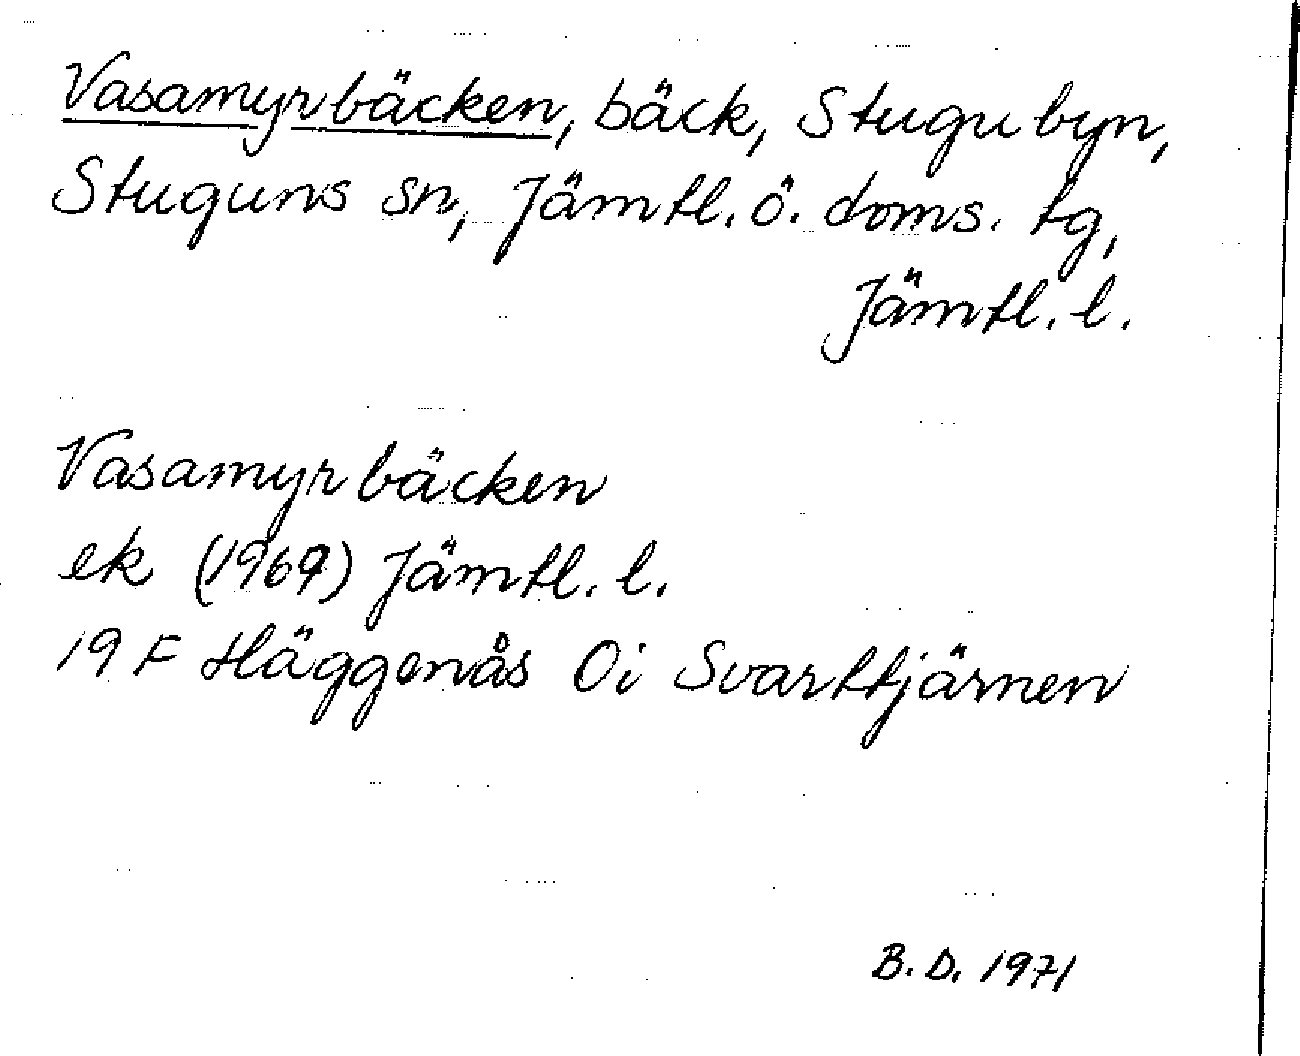 Vasamyrbäcken, bäck, Stugubyn,
Stuguns sn, Jämtl. ö. doms. tg,
Jämtl. l.
Vasamyrbäcken
ek (1969) Jämtl. l.
19 F Häggenås Oi Svarttjärnen
B. D. 1971